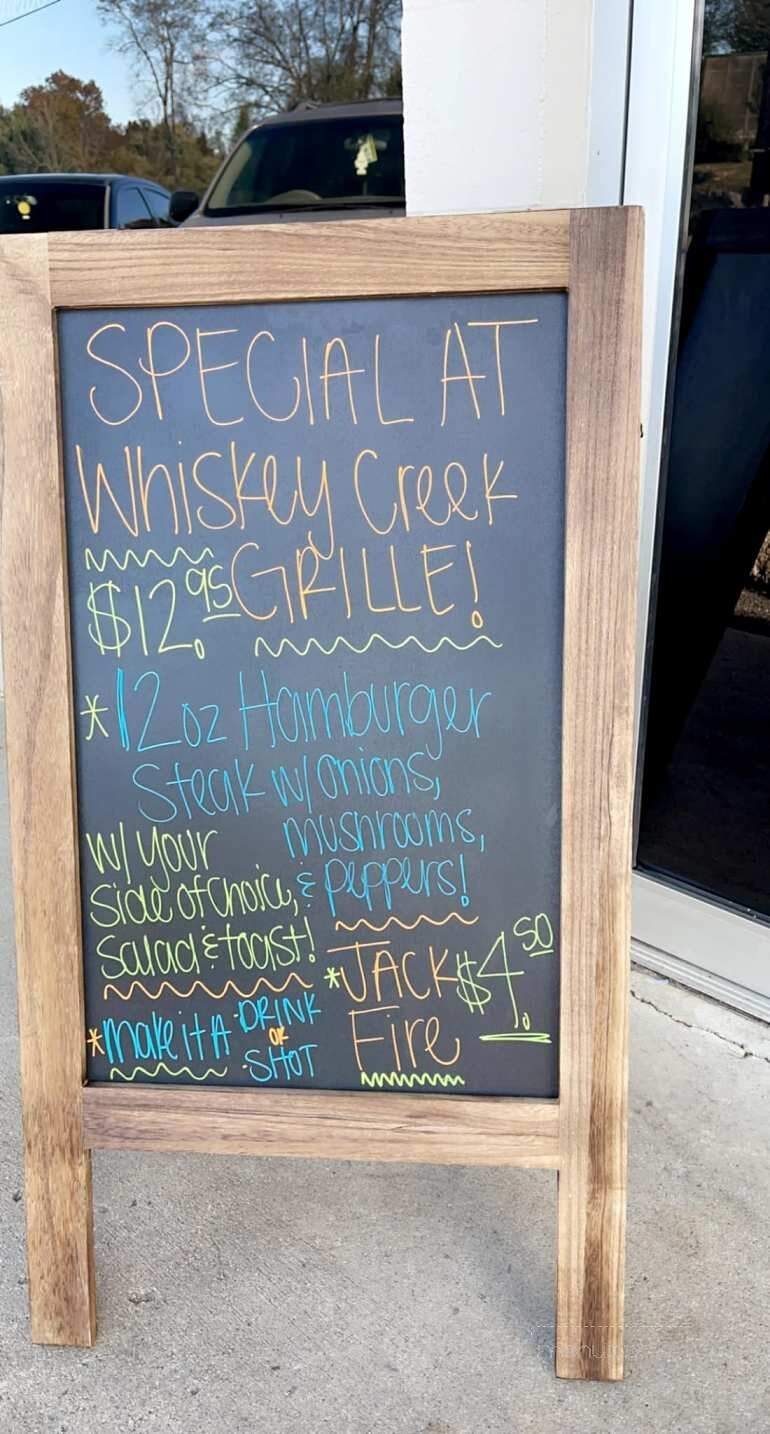 SPECIAL AT
Whiskey Creek
GRILLE!
$12.95
*12oz Hamburger
Steak w/ onions,
mushrooms,
& peppers!
w/ your
side of choice,
salad & toast!
*make it A · DRINK
OR
· SHOT
*JACK $4.50
Fire